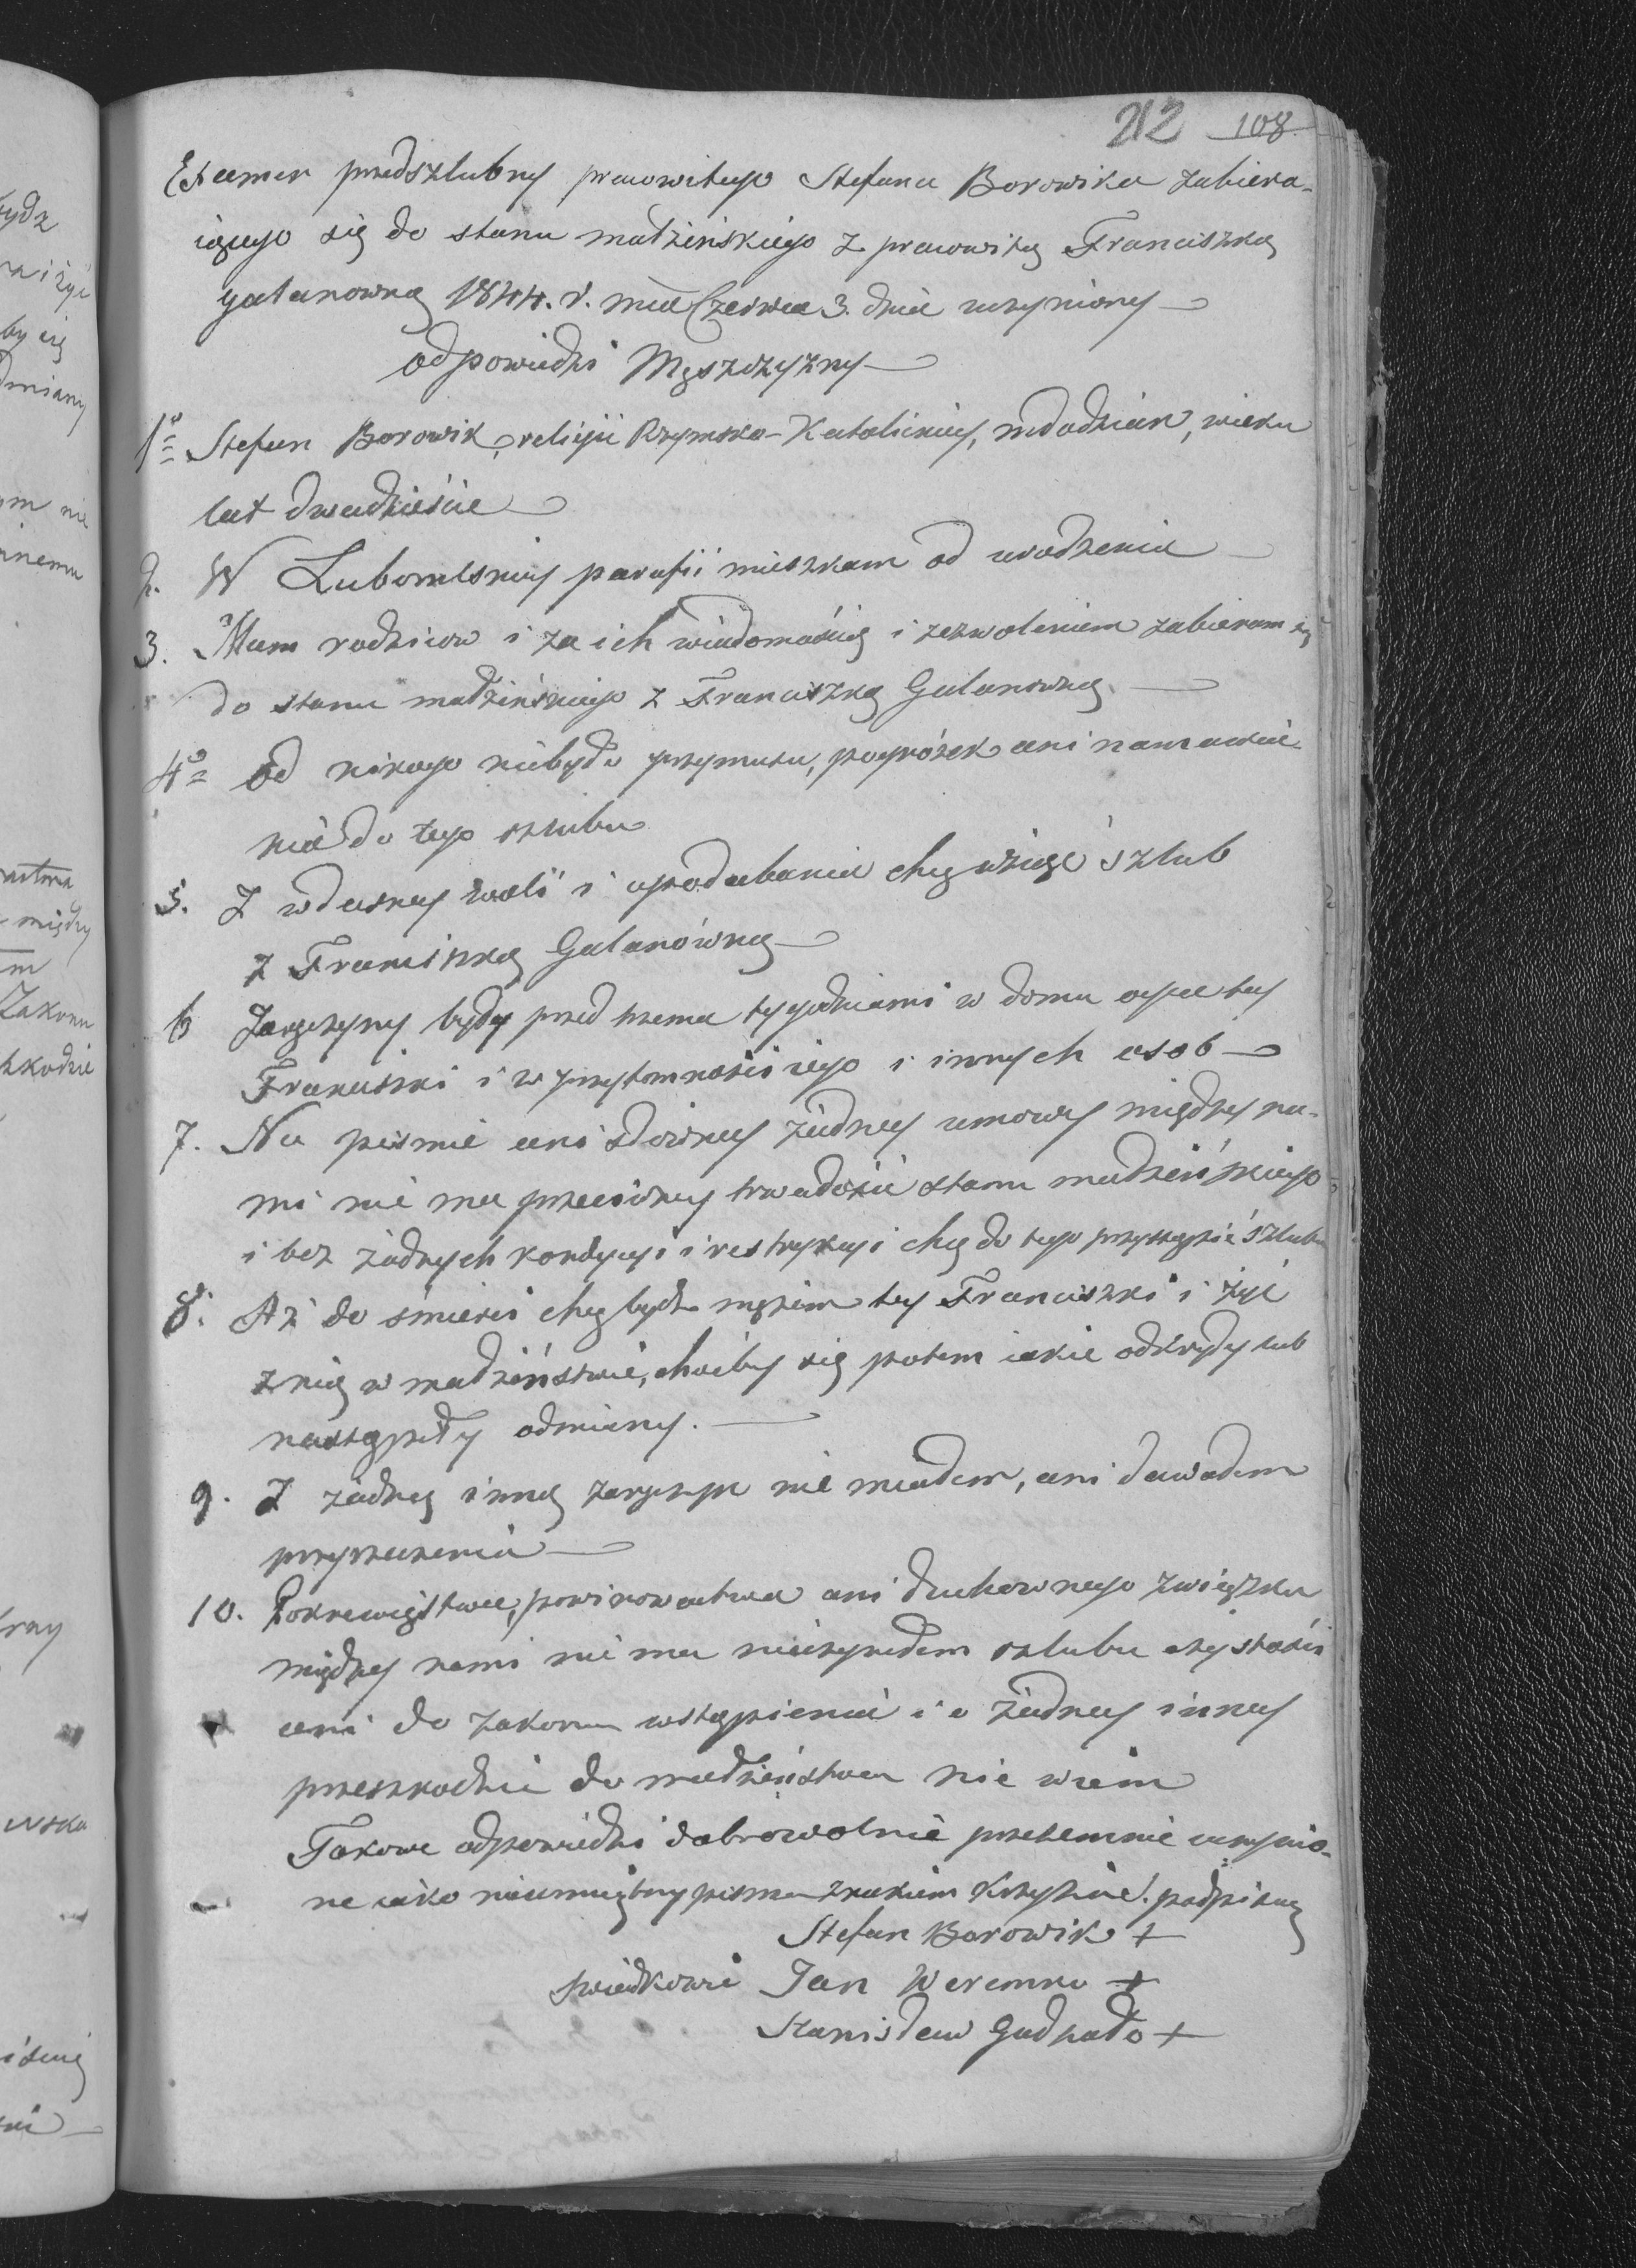 212 108
Examen przedszlubny pracowitego Stefana Borowika zabiera-
iącego się do stanu małżeńskiego z pracowitą Franciszką
galanowną 1844. r. mca Czerwca 3. dnia uczyniony
odpowiedzi Męszczyzny
1º Stefan Borowik, religii Rzymsko-Katolickiey, młodzian, wieku
lat dwadzieścia
2. W Lubomlskiey parafii mieszkam od urodzenia
3. Mam rodzicow i za ich wiadomością i zezwoleniem zabieram się
do stanu małżeńskiego z Franciszką Galanowną
4º od nikogo niebyło przymusu, pogróżek ani namawia-
nia do tego szlubu
5. Z własney woli i upodobania chcę wziąść szlub
z Franciszką Galanówną
6 Zaręczyny były przed trzema tygodniami w domu oyca tey
Franciszki i w przytomności iego i innych osob
7. Na piśmie ani słowney żadney umowy między na-
mi nie ma przeciwney trwałości stanu małżeńskiego
i bez żadnych kondycyi i restrykcyi chcę do tego przystąpić szlubu
8. Aż do śmierci chcę bydź mężem tey Franciszki i żyć
z nią w małżeństwie, choćby się potem iakie odkryły lub
nastąpiły odmiany.
9. Z żadną inną zaręczyn nie miałem, ani dawałem
przyrzeczenia
10. Pokrewieństwa, powinowactwa ani duchownego związku
między nami nie ma nieczyniłem szlubu czystości
ani do zakonu wstąpienia i o żadney inney
przeszkodzie do małżeństwa nie wiem
Takowe odpowiedzi dobrowolnie przezemnie uczynio-
ne iako nieumiejętny pisma znakiem Krzyża podpisuię
Stefan Borowik +
swiadkowie Jan Weremko +
Stanisław +